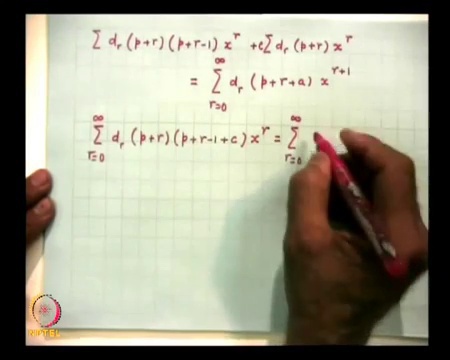 Σ dᵣ (p+r) (p+r-1) xʳ + c Σ dᵣ (p+r) xʳ
= Σ_{r=0}^{∞} dᵣ (p+r+a) x^{r+1}
Σ_{r=0}^{∞} dᵣ (p+r) (p+r-1+c) xʳ = Σ_{r=0}^{∞}
NPTEL